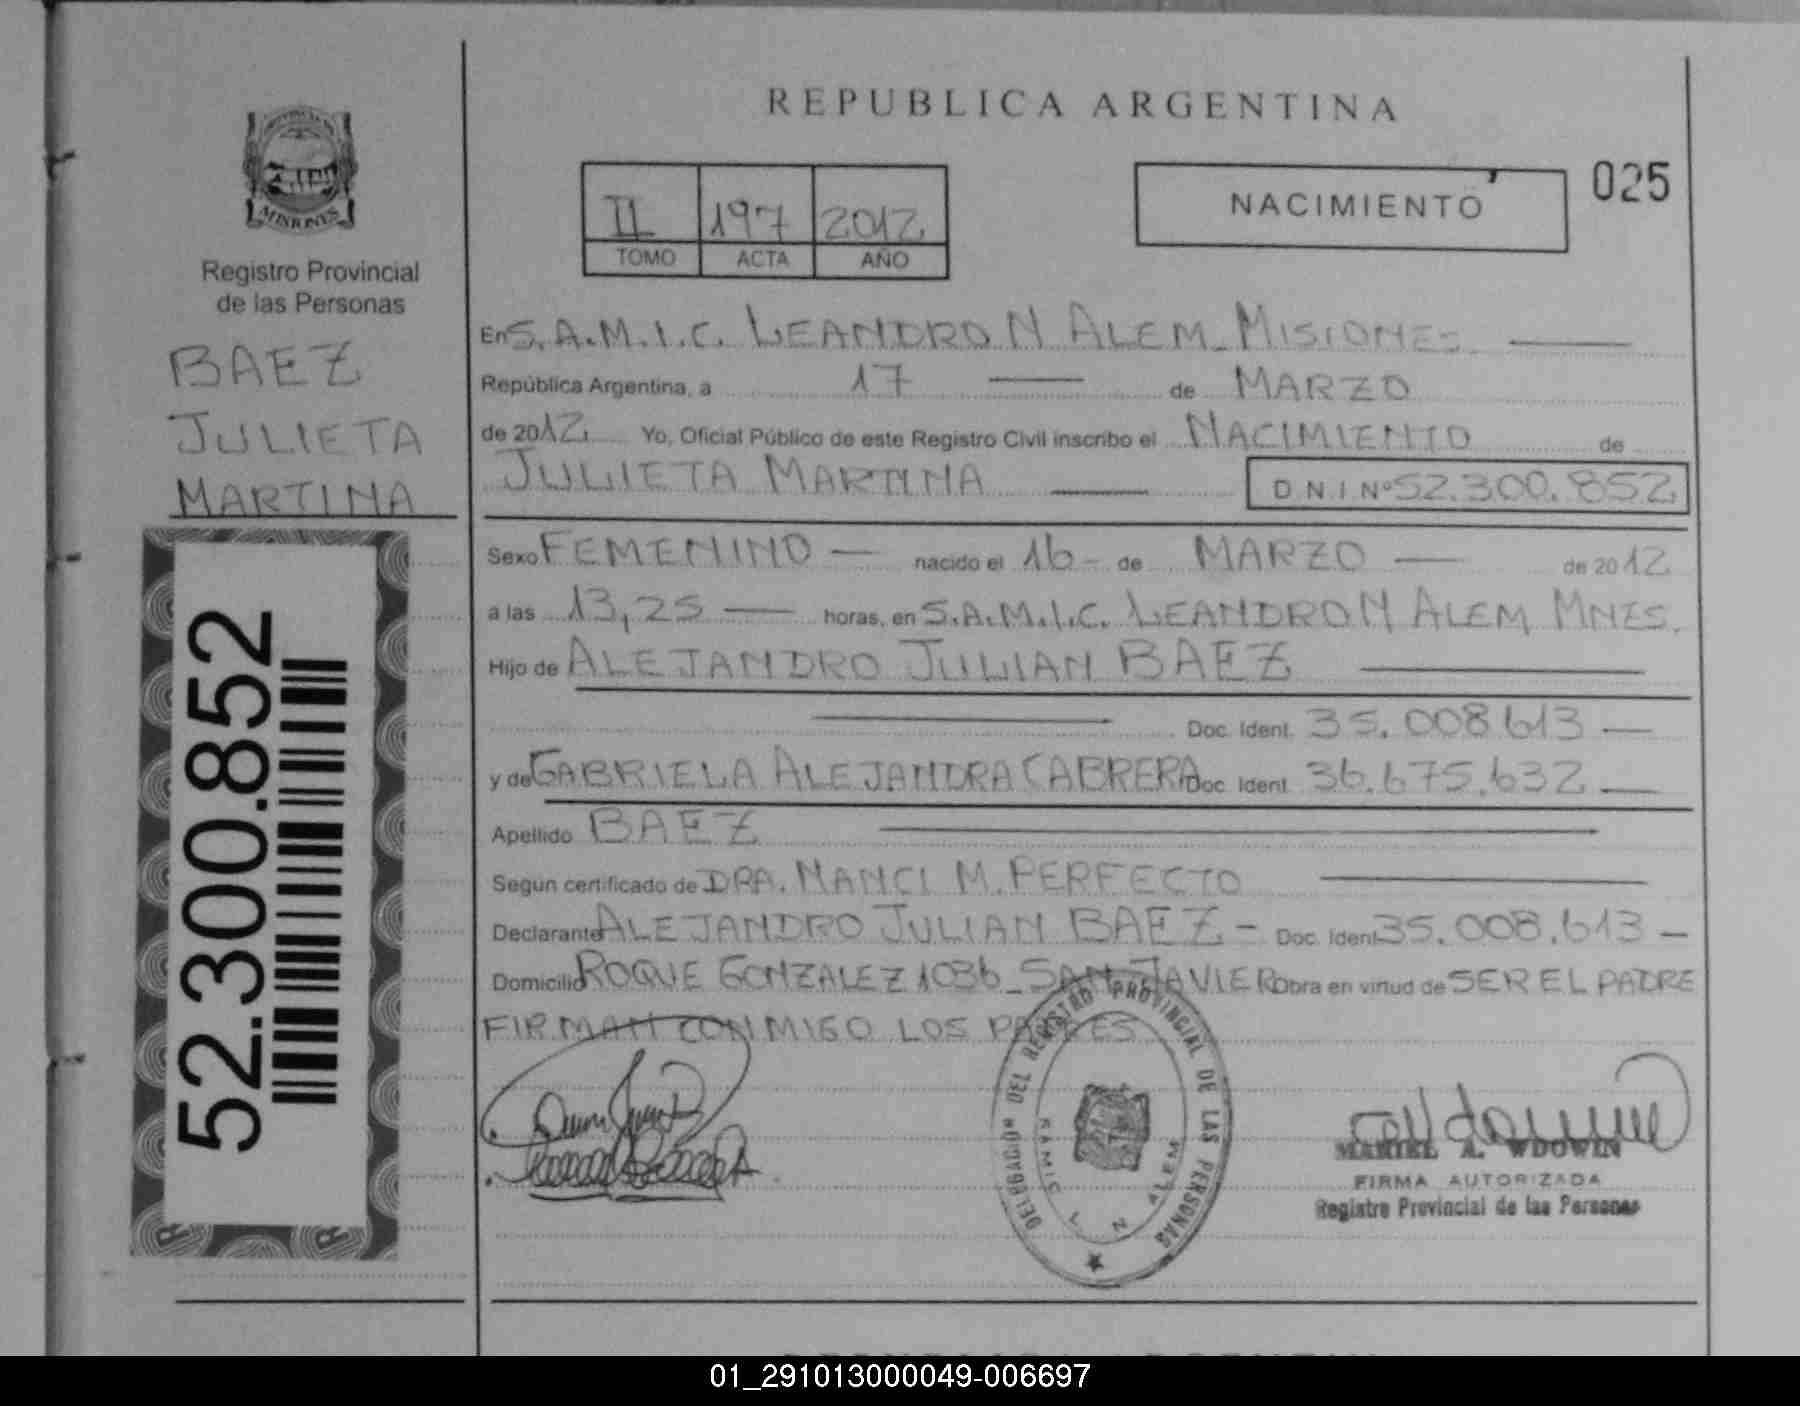 REPUBLICA ARGENTINA
PROVINCIA DE
MISIONES
Registro Provincial
de las Personas
BAEZ
JULIETA
MARTINA
52.300.852
II 197 2012
TOMO ACTA AÑO
NACIMIENTO
025
En S.A.M.I.C. LEANDRO N ALEM_ MISIONES
República Argentina, a 17 de MARZO
de 2012 Yo, Oficial Público de este Registro Civil inscribo el NACIMIENTO de
JULIETA MARTINA D N I Nº 52.300.852
Sexo FEMENINO — nacido el 16 - de MARZO — de 2012
a las 13,25 — horas, en S.A.M.I.C. LEANDRO N ALEM MNES.
Hijo de ALEJANDRO JULIAN BAEZ
Doc. Ident. 35.008.613 —
y de GABRIELA ALEJANDRA CABRERA Doc. Ident. 36.675.632 —
Apellido BAEZ
Segun certificado de DRA. NANCI M. PERFECTO
Declarante ALEJANDRO JULIAN BAEZ - Doc. Ident. 35.008.613 —
Domicilio ROQUE GONZALEZ 1036_ SAN JAVIER Obra en virtud de SER EL PADRE
FIRMAN CONMIGO LOS PADRES
DELEGACION DEL REGISTRO PROVINCIAL DE LAS PERSONAS
SAMIC L N ALEM
MARIEL A. WDOWIN
FIRMA AUTORIZADA
Registro Provincial de las Personas
01_291013000049-006697